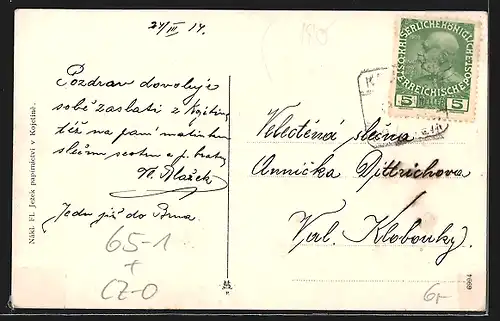 24/III 14.
Pozdrav dovoluje
sobě zaslati z Kojetína
též na paní matinku
slečnu sestru a p. bratra
Blažek
Jedu již do Brna
65-1
+
CZ-0
Nákl. Fl. Ježek papírnictví v Kojetíně.
KAISERLICHEKÖNIGLICHE
ÖSTERREICHISCHE POST
5 HELLER 5
Velectěná slečna
Annička Dittrichova
Val. Klobouky.
6r
6994